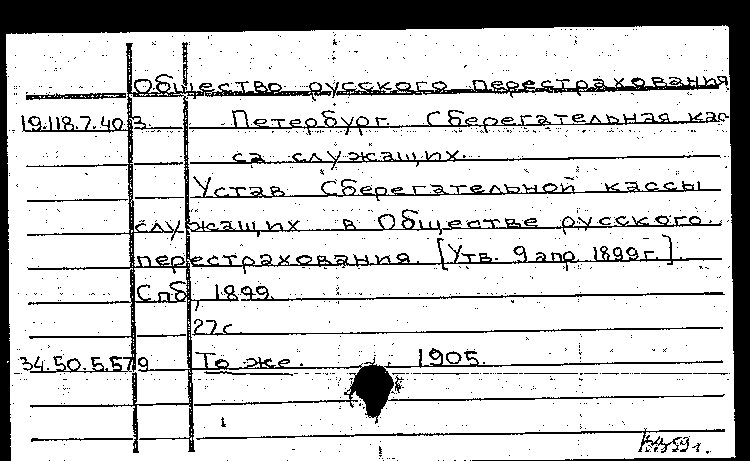 Общество русского перестрахования
19.118.7.403. Петербург. Сберегательная кас-
са служащих.
Устав Сберегательной кассы
служащих в Обществе русского
перестрахования. [Утв. 9 апр. 1899 г.].
Спб, 1899.
27 с.
34.50.5.579 То же. 1905.
59 г.